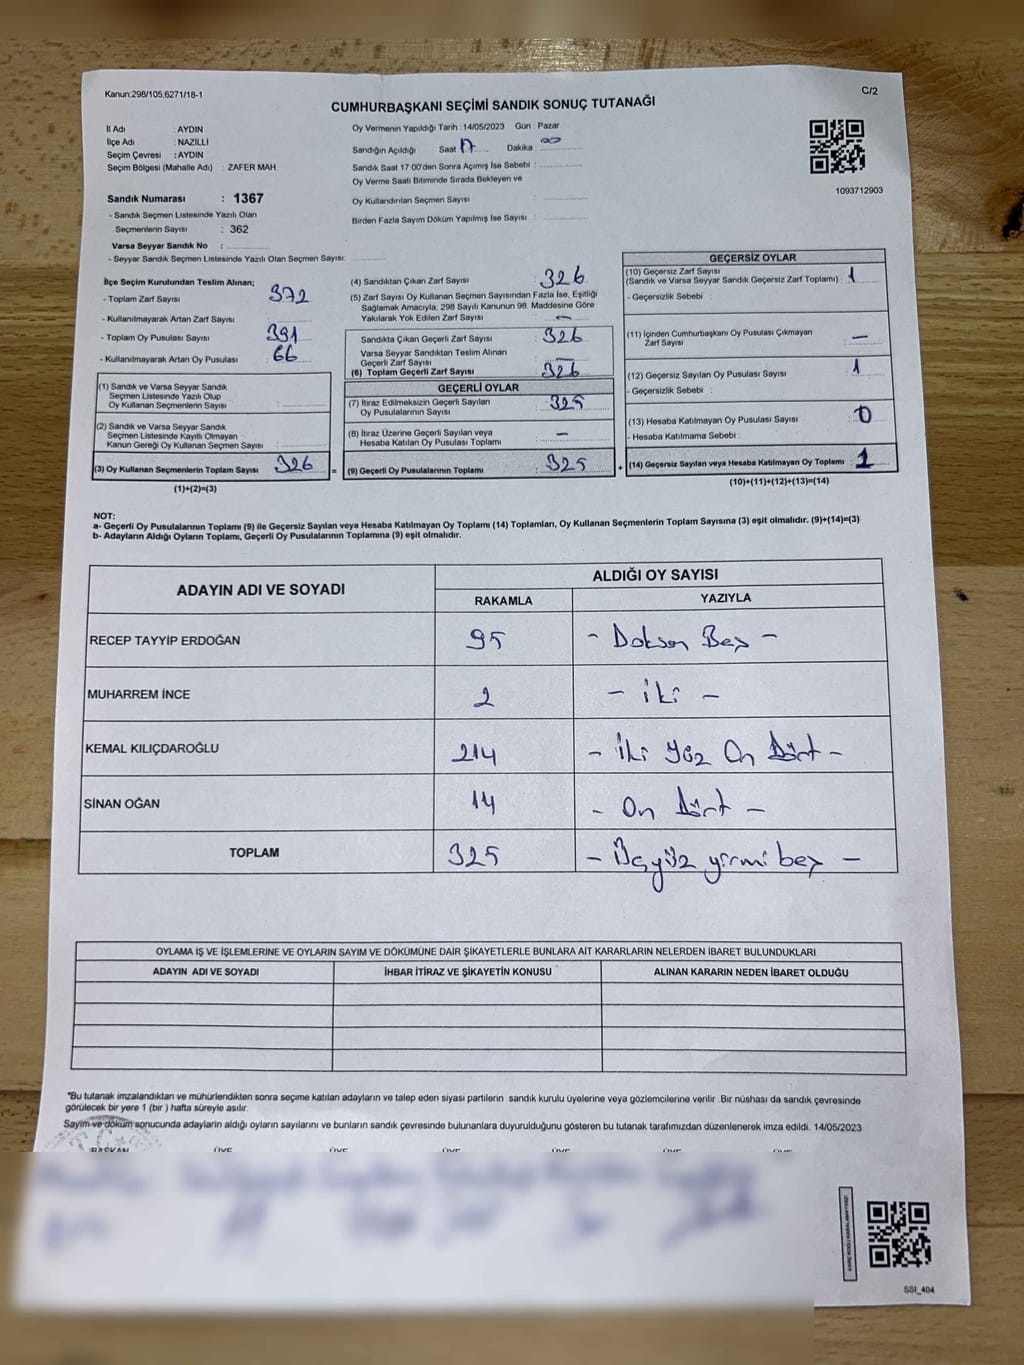 Kanun:298/105,6271/18-1
C/2
CUMHURBAŞKANI SEÇİMİ SANDIK SONUÇ TUTANAĞI
İl Adı : AYDIN
İlçe Adı : NAZİLLİ
Seçim Çevresi : AYDIN
Seçim Bölgesi (Mahalle Adı) : ZAFER MAH.
Sandık Numarası : 1367
- Sandık Seçmen Listesinde Yazılı Olan
Seçmenlerin Sayısı : 362
Varsa Seyyar Sandık No :
- Seyyar Sandık Listesinde Yazılı Olan Seçmen Sayısı:
Oy Vermenin Yapıldığı Tarih : 14/05/2023 Gün : Pazar
Sandığın Açıldığı Saat 17 Dakika : 00
Sandık Saat 17:00'den Sonra Açımış İse Sebebi :
Oy Verme Saati Bitiminde Sırada Bekleyen ve
Oy Kullandırılan Seçmen Sayısı :
Birden Fazla Sayım Döküm Yapılmış İse Sayısı :
1093712903
İlçe Seçim Kurulundan Teslim Alınan;
- Toplam Zarf Sayısı : 372
- Kullanılmayarak Artan Zarf Sayısı :
- Toplam Oy Pusulası Sayısı : 391
- Kullanılmayarak Artan Oy Pusulası : 66
(1) Sandık ve Varsa Seyyar Sandık
Seçmen Listesinde Yazılı Olup
Oy Kullanan Seçmenlerin Sayısı :
(2) Sandık ve Varsa Seyyar Sandık
Seçmen Listesinde Kayıtlı Olmayan
Kanun Gereği Oy Kullanan Seçmen Sayısı :
(3) Oy Kullanan Seçmenlerin Toplam Sayısı : 326
(1)+(2)=(3)
(4) Sandıktan Çıkan Zarf Sayısı : 326
(5) Zarf Sayısı Oy Kullanan Seçmen Sayısından Fazla İse, Eşitliği
Sağlamak Amacıyla; 298 Sayılı Kanunun 98. Maddesine Göre
Yakılarak Yok Edilen Zarf Sayısı : —
Sandıkta Çıkan Geçerli Zarf Sayısı : 326
Varsa Seyyar Sandıktan Teslim Alınan
Geçerli Zarf Sayısı : —
(6) Toplam Geçerli Zarf Sayısı : 326
GEÇERLİ OYLAR
(7) İtiraz Edilmeksizin Geçerli Sayılan
Oy Pusulalarının Sayısı : 325
(8) İtiraz Üzerine Geçerli Sayılan veya
Hesaba Katılan Oy Pusulası Toplamı : —
= (9) Geçerli Oy Pusulalarının Toplamı : 325
GEÇERSİZ OYLAR
(10) Geçersiz Zarf Sayısı
(Sandık ve Varsa Seyyar Sandık Geçersiz Zarf Toplamı) : 1
- Geçersizlik Sebebi :
(11) İçinden Cumhurbaşkanı Oy Pusulası Çıkmayan
Zarf Sayısı : —
(12) Geçersiz Sayılan Oy Pusulası Sayısı : 1
- Geçersizlik Sebebi :
(13) Hesaba Katılmayan Oy Pusulası Sayısı : 0
- Hesaba Katılmama Sebebi :
+ (14) Geçersiz Sayılan veya Hesaba Katılmayan Oy Toplamı : 1
(10)+(11)+(12)+(13)=(14)
NOT:
a- Geçerli Oy Pusulalarının Toplamı (9) ile Geçersiz Sayılan veya Hesaba Katılmayan Oy Toplamı (14) Toplamları, Oy Kullanan Seçmenlerin Toplam Sayısına (3) eşit olmalıdır. (9)+(14)=(3)
b- Adayların Aldığı Oyların Toplamı, Geçerli Oy Pusulalarının Toplamına (9) eşit olmalıdır.
ADAYIN ADI VE SOYADI
ALDIĞI OY SAYISI
RAKAMLA YAZIYLA
RECEP TAYYİP ERDOĞAN 95 - Doksan Beş -
MUHARREM İNCE 2 - İki -
KEMAL KILIÇDAROĞLU 214 - İki Yüz On Dört -
SİNAN OĞAN 14 - On Dört -
TOPLAM 325 - Üçyüz yirmi beş -
OYLAMA İŞ VE İŞLEMLERİNE VE OYLARIN SAYIM VE DÖKÜMÜNE DAİR ŞİKAYETLERLE BUNLARA AİT KARARLARIN NELERDEN İBARET BULUNDUKLARI
ADAYIN ADI VE SOYADI İHBAR İTİRAZ VE ŞİKAYETİN KONUSU ALINAN KARARIN NEDEN İBARET OLDUĞU
*Bu tutanak imzalandıktan ve mühürlendikten sonra seçime katılan adayların ve talep eden siyasi partilerin sandık kurulu üyelerine veya gözlemcilerine verilir .Bir nüshası da sandık çevresinde
görülecek bir yere 1 (bir ) hafta süreyle asılır.
Sayım ve döküm sonucunda adayların aldığı oyların sayılarını ve bunların sandık çevresinde bulunanlara duyurulduğunu gösteren bu tutanak tarafımızdan düzenlenerek imza edildi. 14/05/2023
BAŞKAN ÜYE ÜYE ÜYE ÜYE ÜYE ÜYE
SSI_404